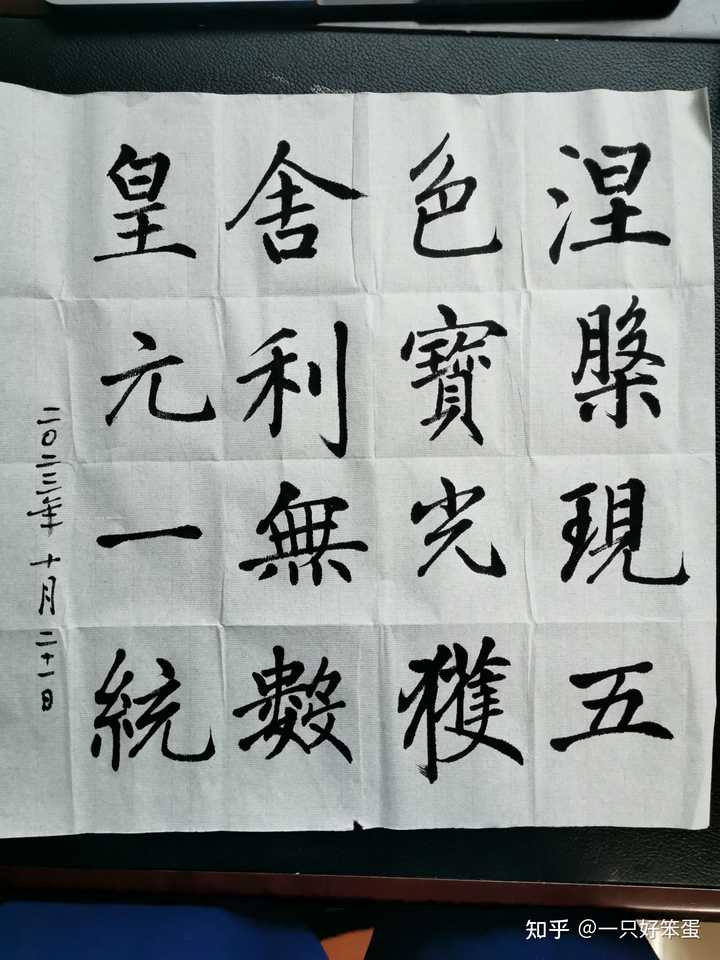 涅槃現五
色寶光獲
舍利無數
皇元一統
二〇二三年十月二十一日
知乎 @一只好笨蛋